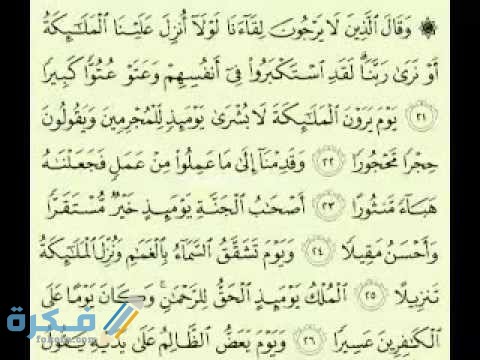 ۞ وَقَالَ ٱلَّذِينَ لَا يَرْجُونَ لِقَآءَنَا لَوْلَآ أُنزِلَ عَلَيْنَا ٱلْمَلَٰٓئِكَةُ
أَوْ نَرَىٰ رَبَّنَا ۗ لَقَدِ ٱسْتَكْبَرُوا۟ فِىٓ أَنفُسِهِمْ وَعَتَوْ عُتُوًّا كَبِيرًا
﴿٢١﴾ يَوْمَ يَرَوْنَ ٱلْمَلَٰٓئِكَةَ لَا بُشْرَىٰ يَوْمَئِذٍ لِّلْمُجْرِمِينَ وَيَقُولُونَ
حِجْرًا مَّحْجُورًا ﴿٢٢﴾ وَقَدِمْنَآ إِلَىٰ مَا عَمِلُوا۟ مِنْ عَمَلٍ فَجَعَلْنَٰهُ
هَبَآءً مَّنثُورًا ﴿٢٣﴾ أَصْحَٰبُ ٱلْجَنَّةِ يَوْمَئِذٍ خَيْرٌ مُّسْتَقَرًّا
وَأَحْسَنُ مَقِيلًا ﴿٢٤﴾ وَيَوْمَ تَشَقَّقُ ٱلسَّمَآءُ بِٱلْغَمَٰمِ وَنُزِّلَ ٱلْمَلَٰٓئِكَةُ
تَنزِيلًا ﴿٢٥﴾ ٱلْمُلْكُ يَوْمَئِذٍ ٱلْحَقُّ لِلرَّحْمَٰنِ ۚ وَكَانَ يَوْمًا عَلَى
ٱلْكَٰفِرِينَ عَسِيرًا ﴿٢٦﴾ وَيَوْمَ يَعَضُّ ٱلظَّالِمُ عَلَىٰ يَدَيْهِ يَقُولُ
فكرة